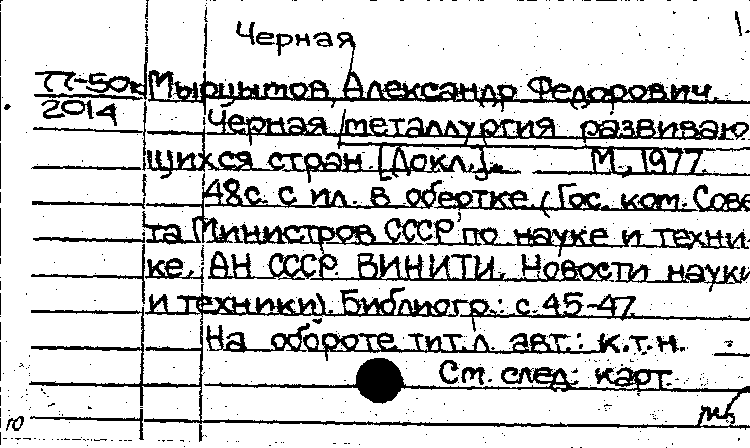 1.
Черная
П-50к Мырцымов, Александр Федорович.
2014
Черная металлургия развиваю-
щихся стран. [Докл.]. М., 1977.
48с. с ил. в обертке (Гос. ком. Сове-
та Министров СССР по науке и техни-
ке. АН СССР. ВИНИТИ. Новости науки
и техники). Библиогр.: с. 45-47.
На обороте тит. л. авт.: к.т.н.
См. след. карт.
10